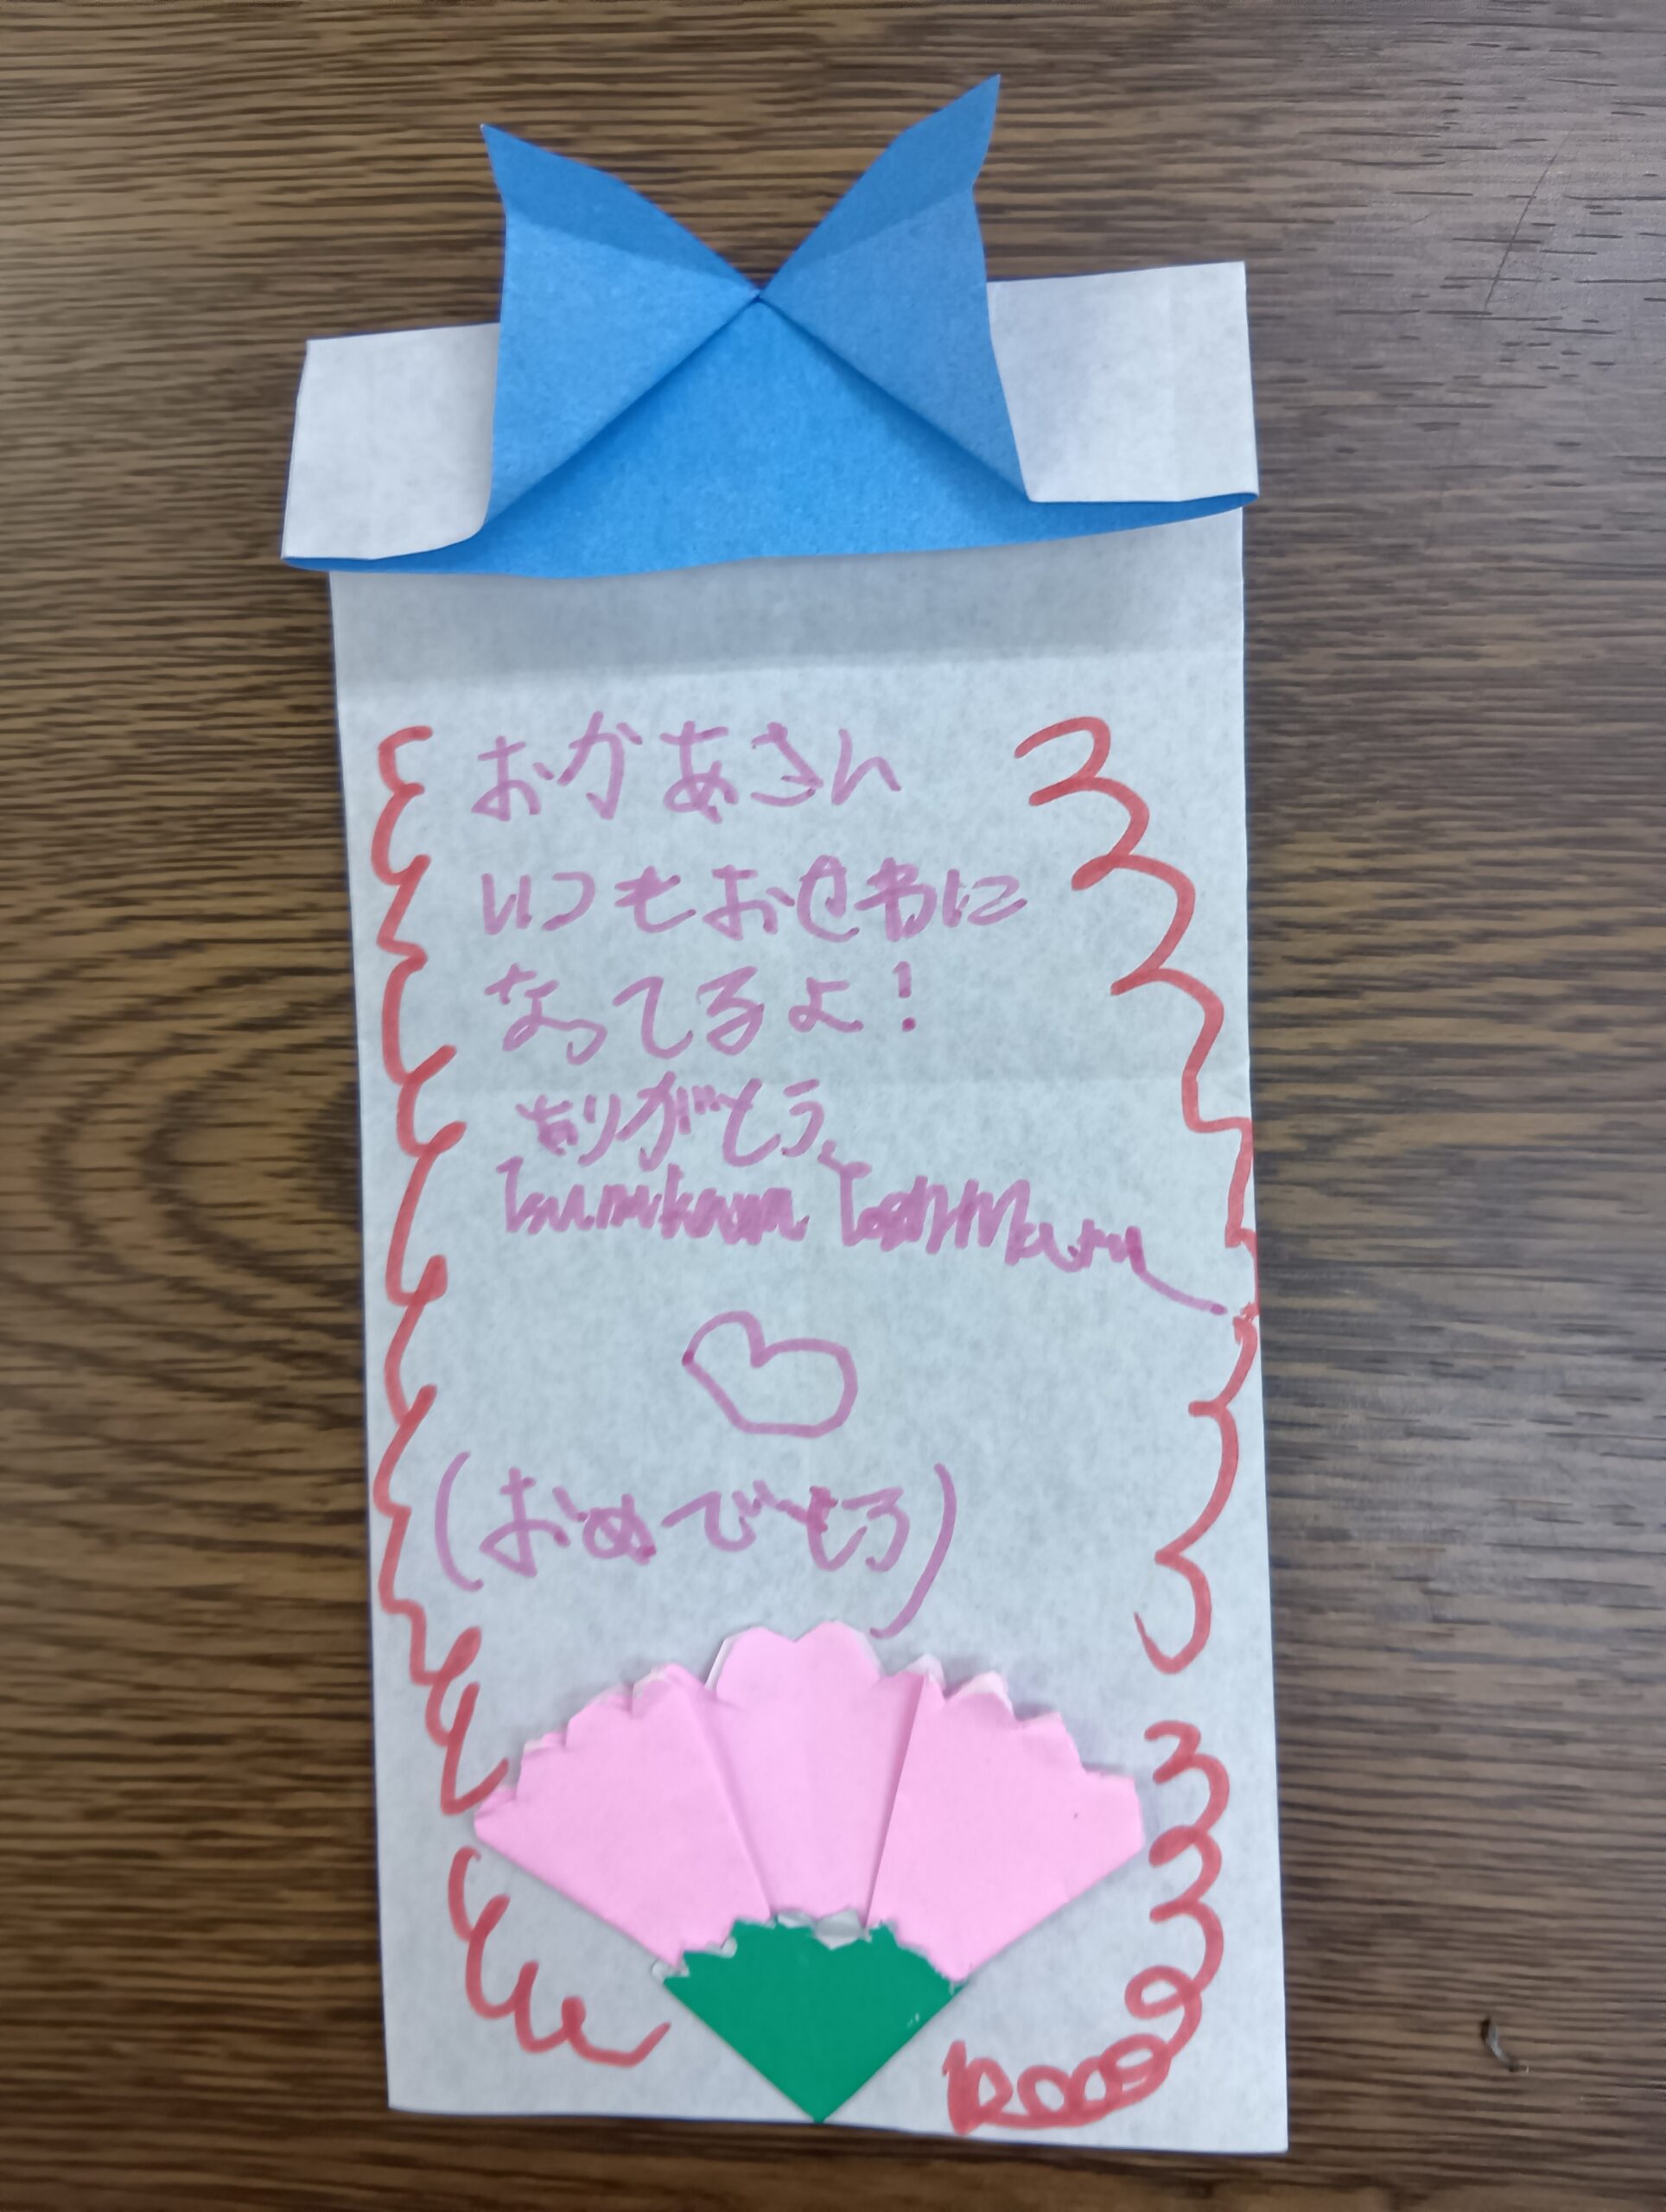 おかあさん
いつもおせわに
なってるよ!
ありがとう。
(おめでとう)